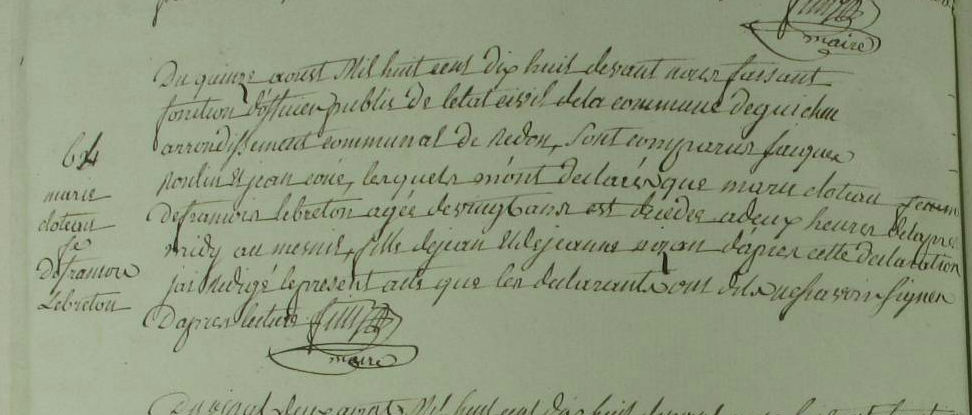 maire
Du quinze aoust Mil huit cent dix huit devant nous faisant
fonction d'officier public de letat civil dela commune deguichen
arrondissement communal de redon, sont comparus jacques
roulin et jean coué, lesquels m'ont declarés que marie cloteau femme
defrancois lebreton agée devingt ans est décédée adeux heures delapres
midy au mesnil, fille dejean et dejeanne d'apres cette declaration
jai redigé lepresent acte que les declarants ont dits nesavoir signer
D'apres lecture
maire
marie
cloteau
fe
defrancois
Lebreton
Du vingt deux aoust Mil huit cent dix huit devant nous